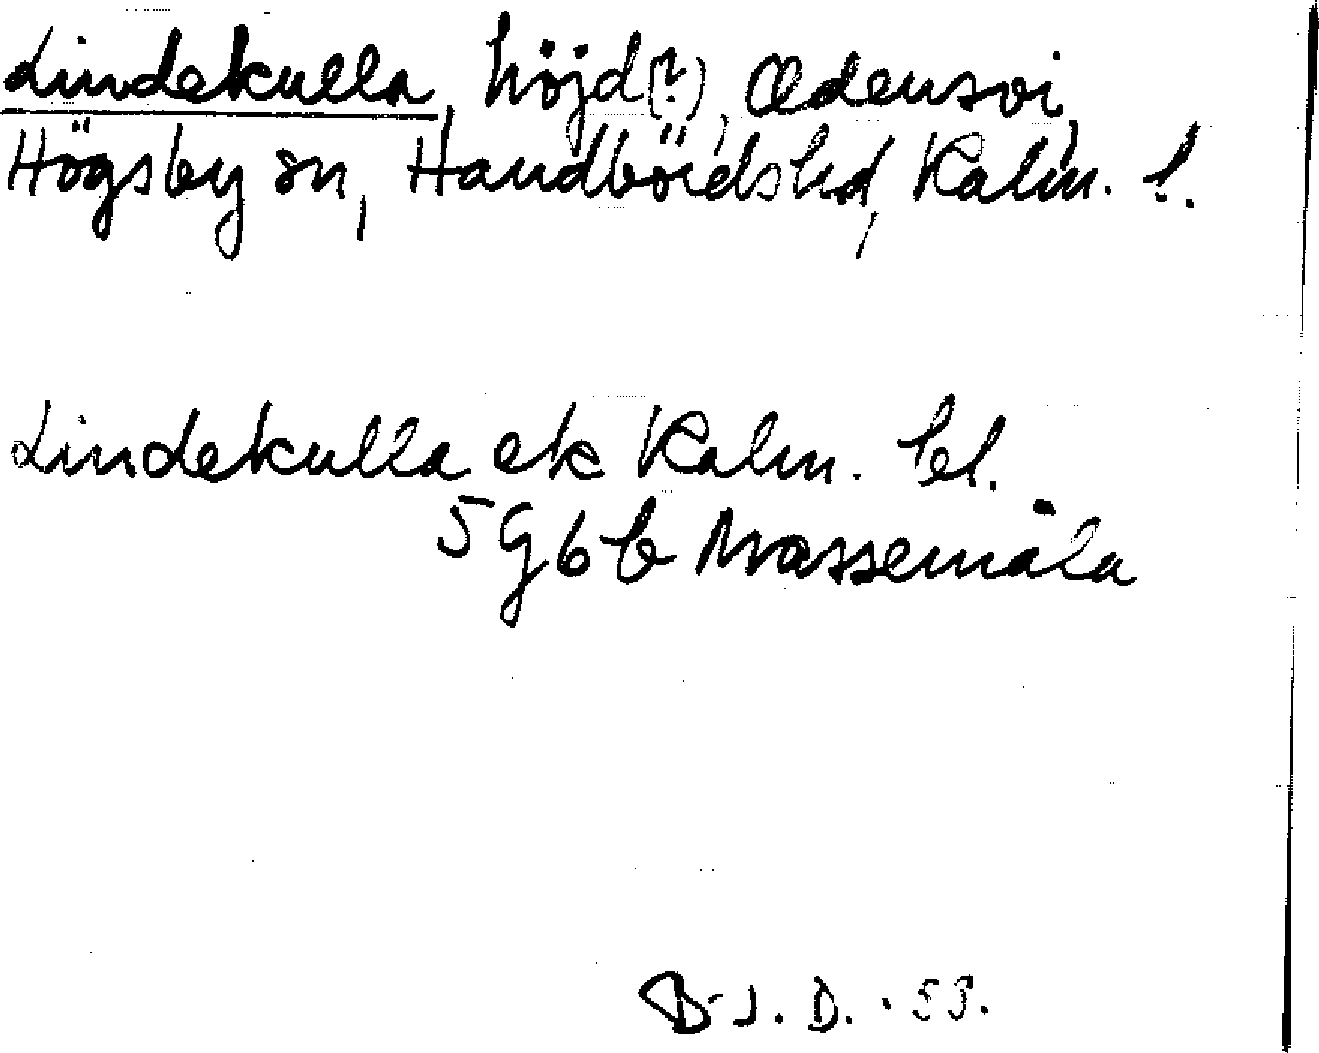 Lindekulla, höjd(?), Ödensvi,
Högsby sn, Handbörds hd, Kalm. l.
Lindekulla ek Kalm. l.
5 G 6 b Massemåla
B-J. D. -53.